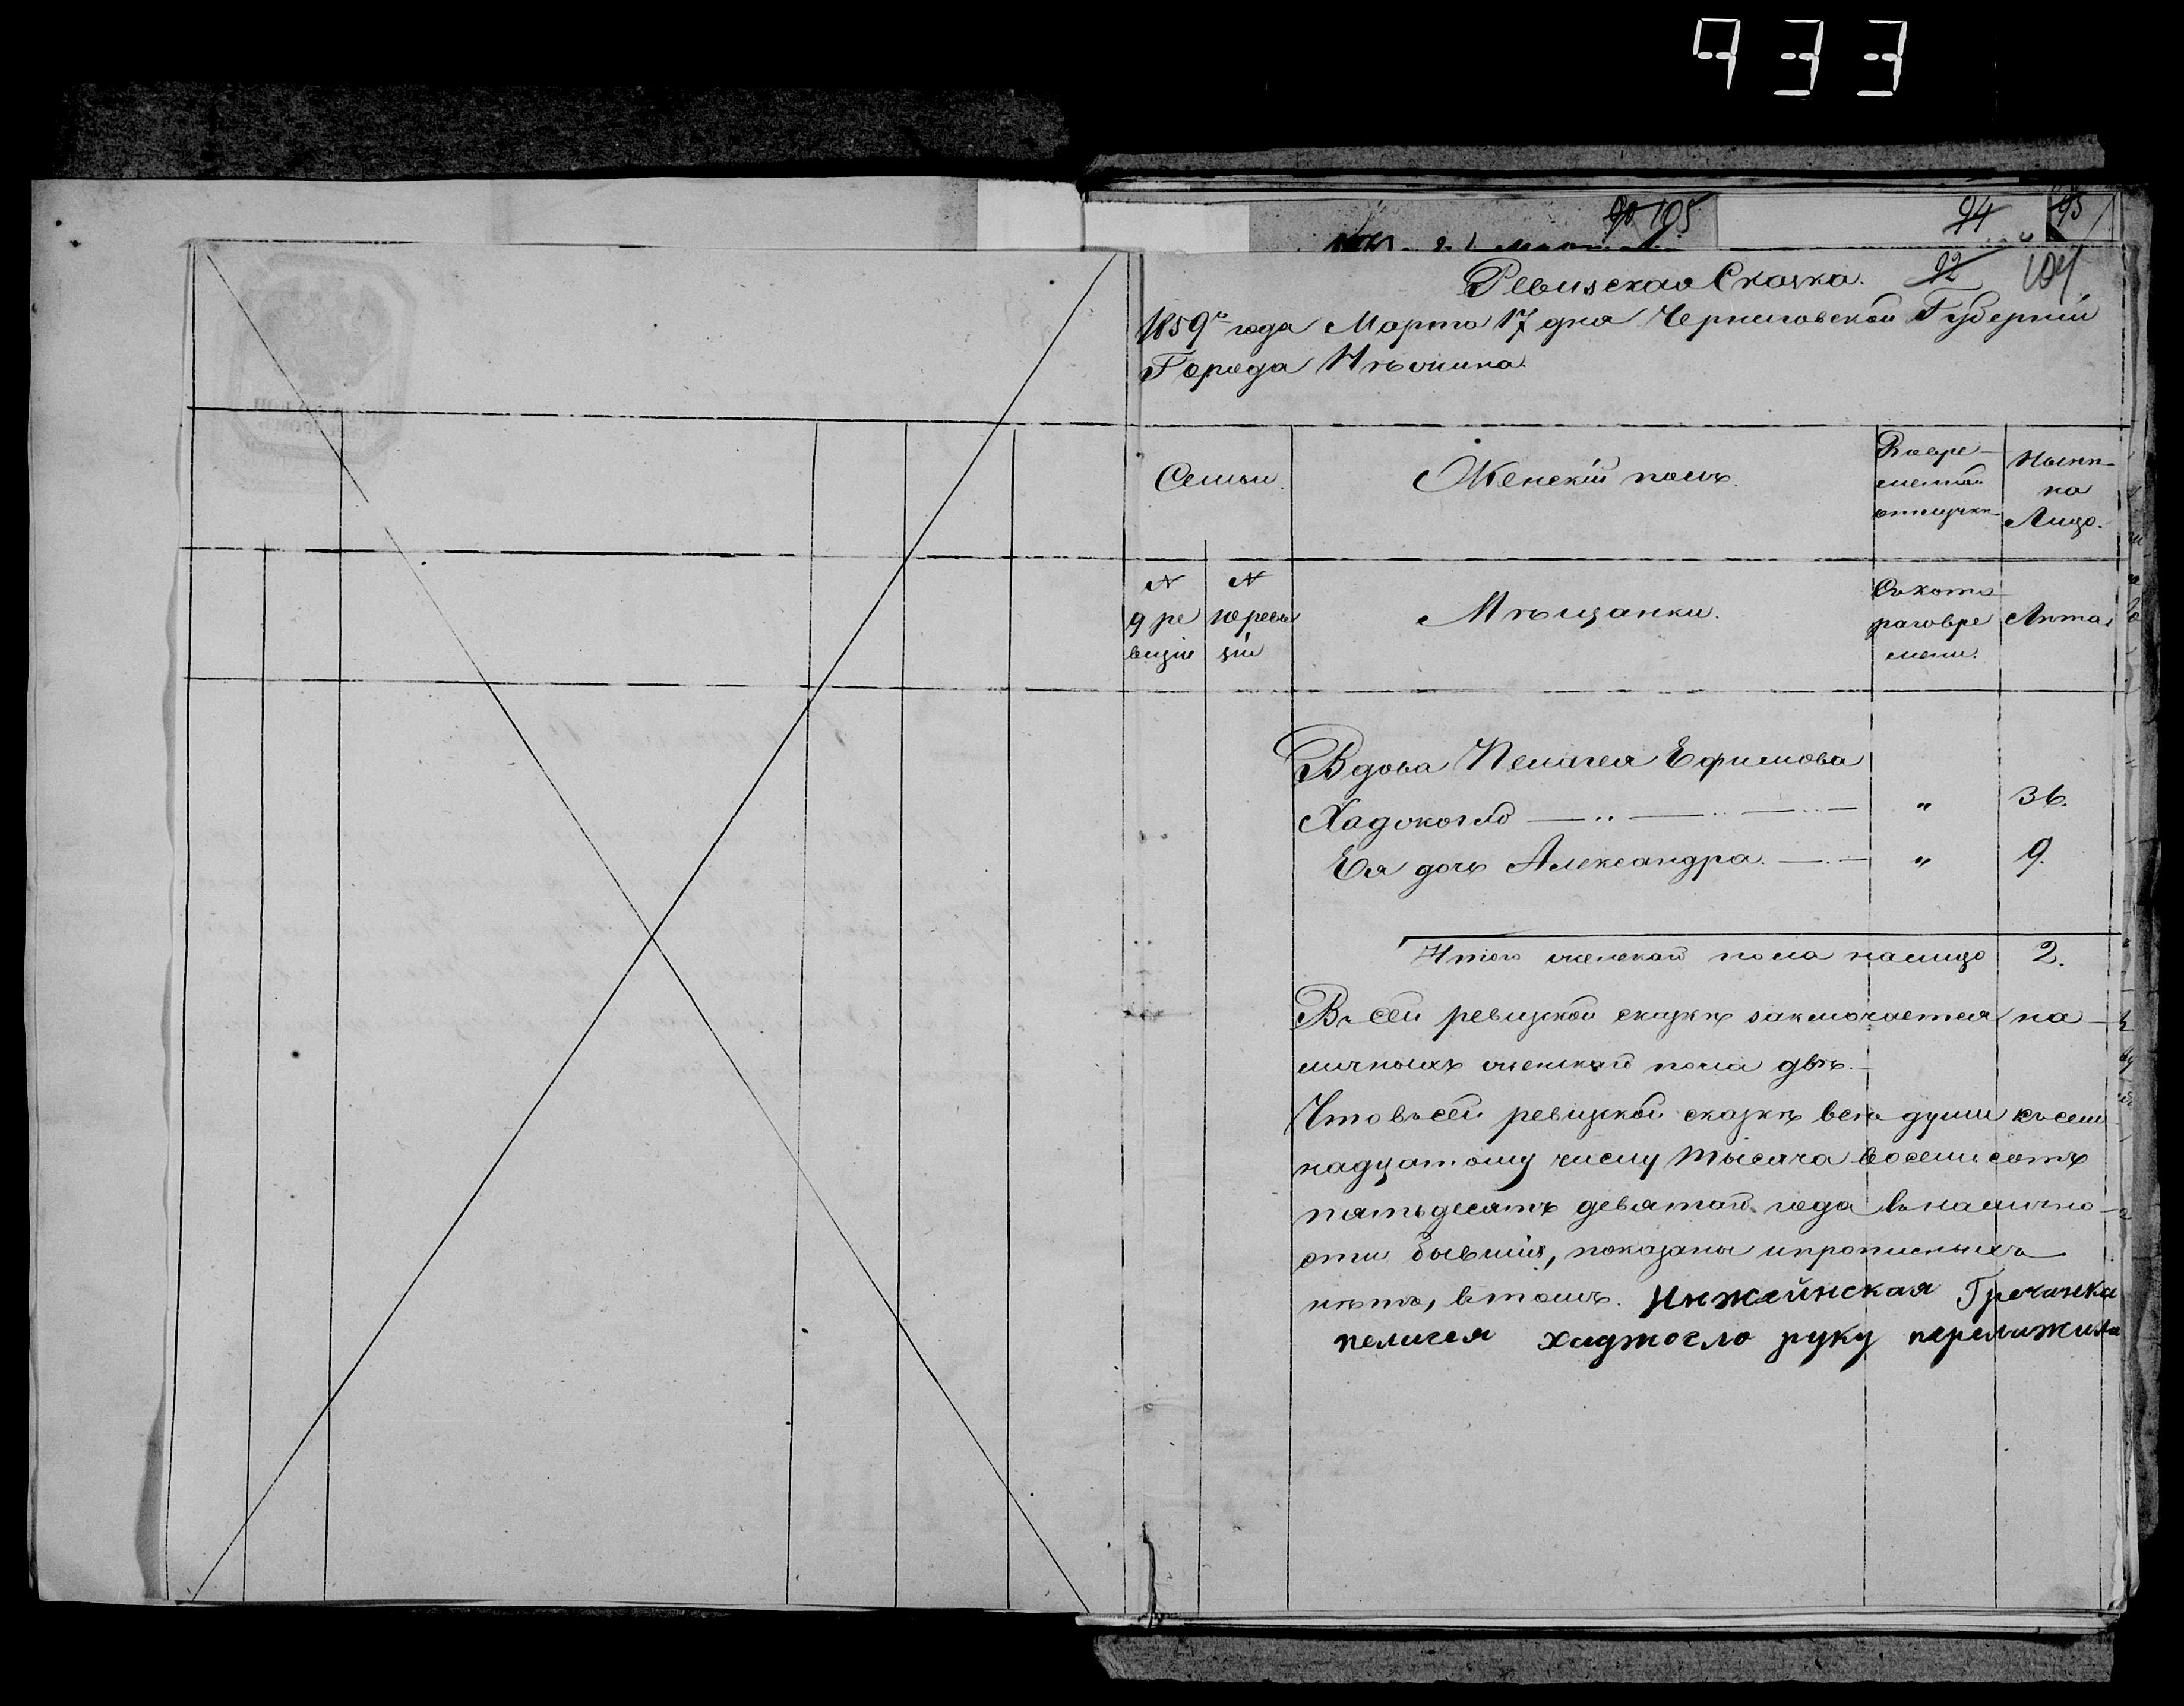 933
90 105
94 95
Ревизская Сказка. 92 104
1859го года Марта 17 дня Черниговской Губерніи
Города Нѣжина
Семьи.
Женскій полъ.
Во вре-
менной
отлучкѣ
Нынѣ
на
Лицо.
№
9 ре
визіи
№
10 реви
зіи
Мѣщанки.
Съ кото
раго вре
мени.
Лѣта.
Вдова Пелагея Ефимова
Хаджогло — „ 36.
Ея дочь Александра. — „ 9.
Итого женскаго пола на лицо 2.
Въ сей ревизской сказкѣ заключается на-
личныхъ женскаго пола двѣ.
Что въ сей ревизской сказкѣ всѣ души къ семи
надцатому числу Тысяча восемисотъ
пятьдесятъ девятаго года въ налично-
сти бывшія, показаны и прописныхъ
нѣтъ, въ томъ. Нижейнская Гречанка
пелагея хаджогло руку пероложила